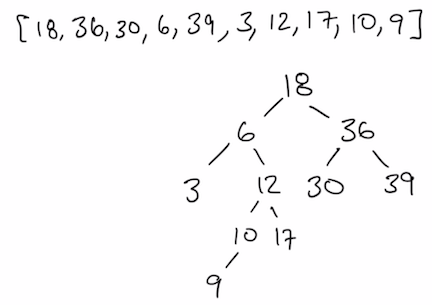 [18, 36, 30, 6, 39, 3, 12, 17, 10, 9]
18
6 36
3 12 30 39
10 17
9